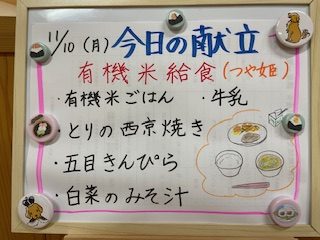 11/10(月)今日の献立
有機米給食(つや姫)
・有機米ごはん ・牛乳
・とりの西京焼き
・五目きんぴら
・白菜のみそ汁